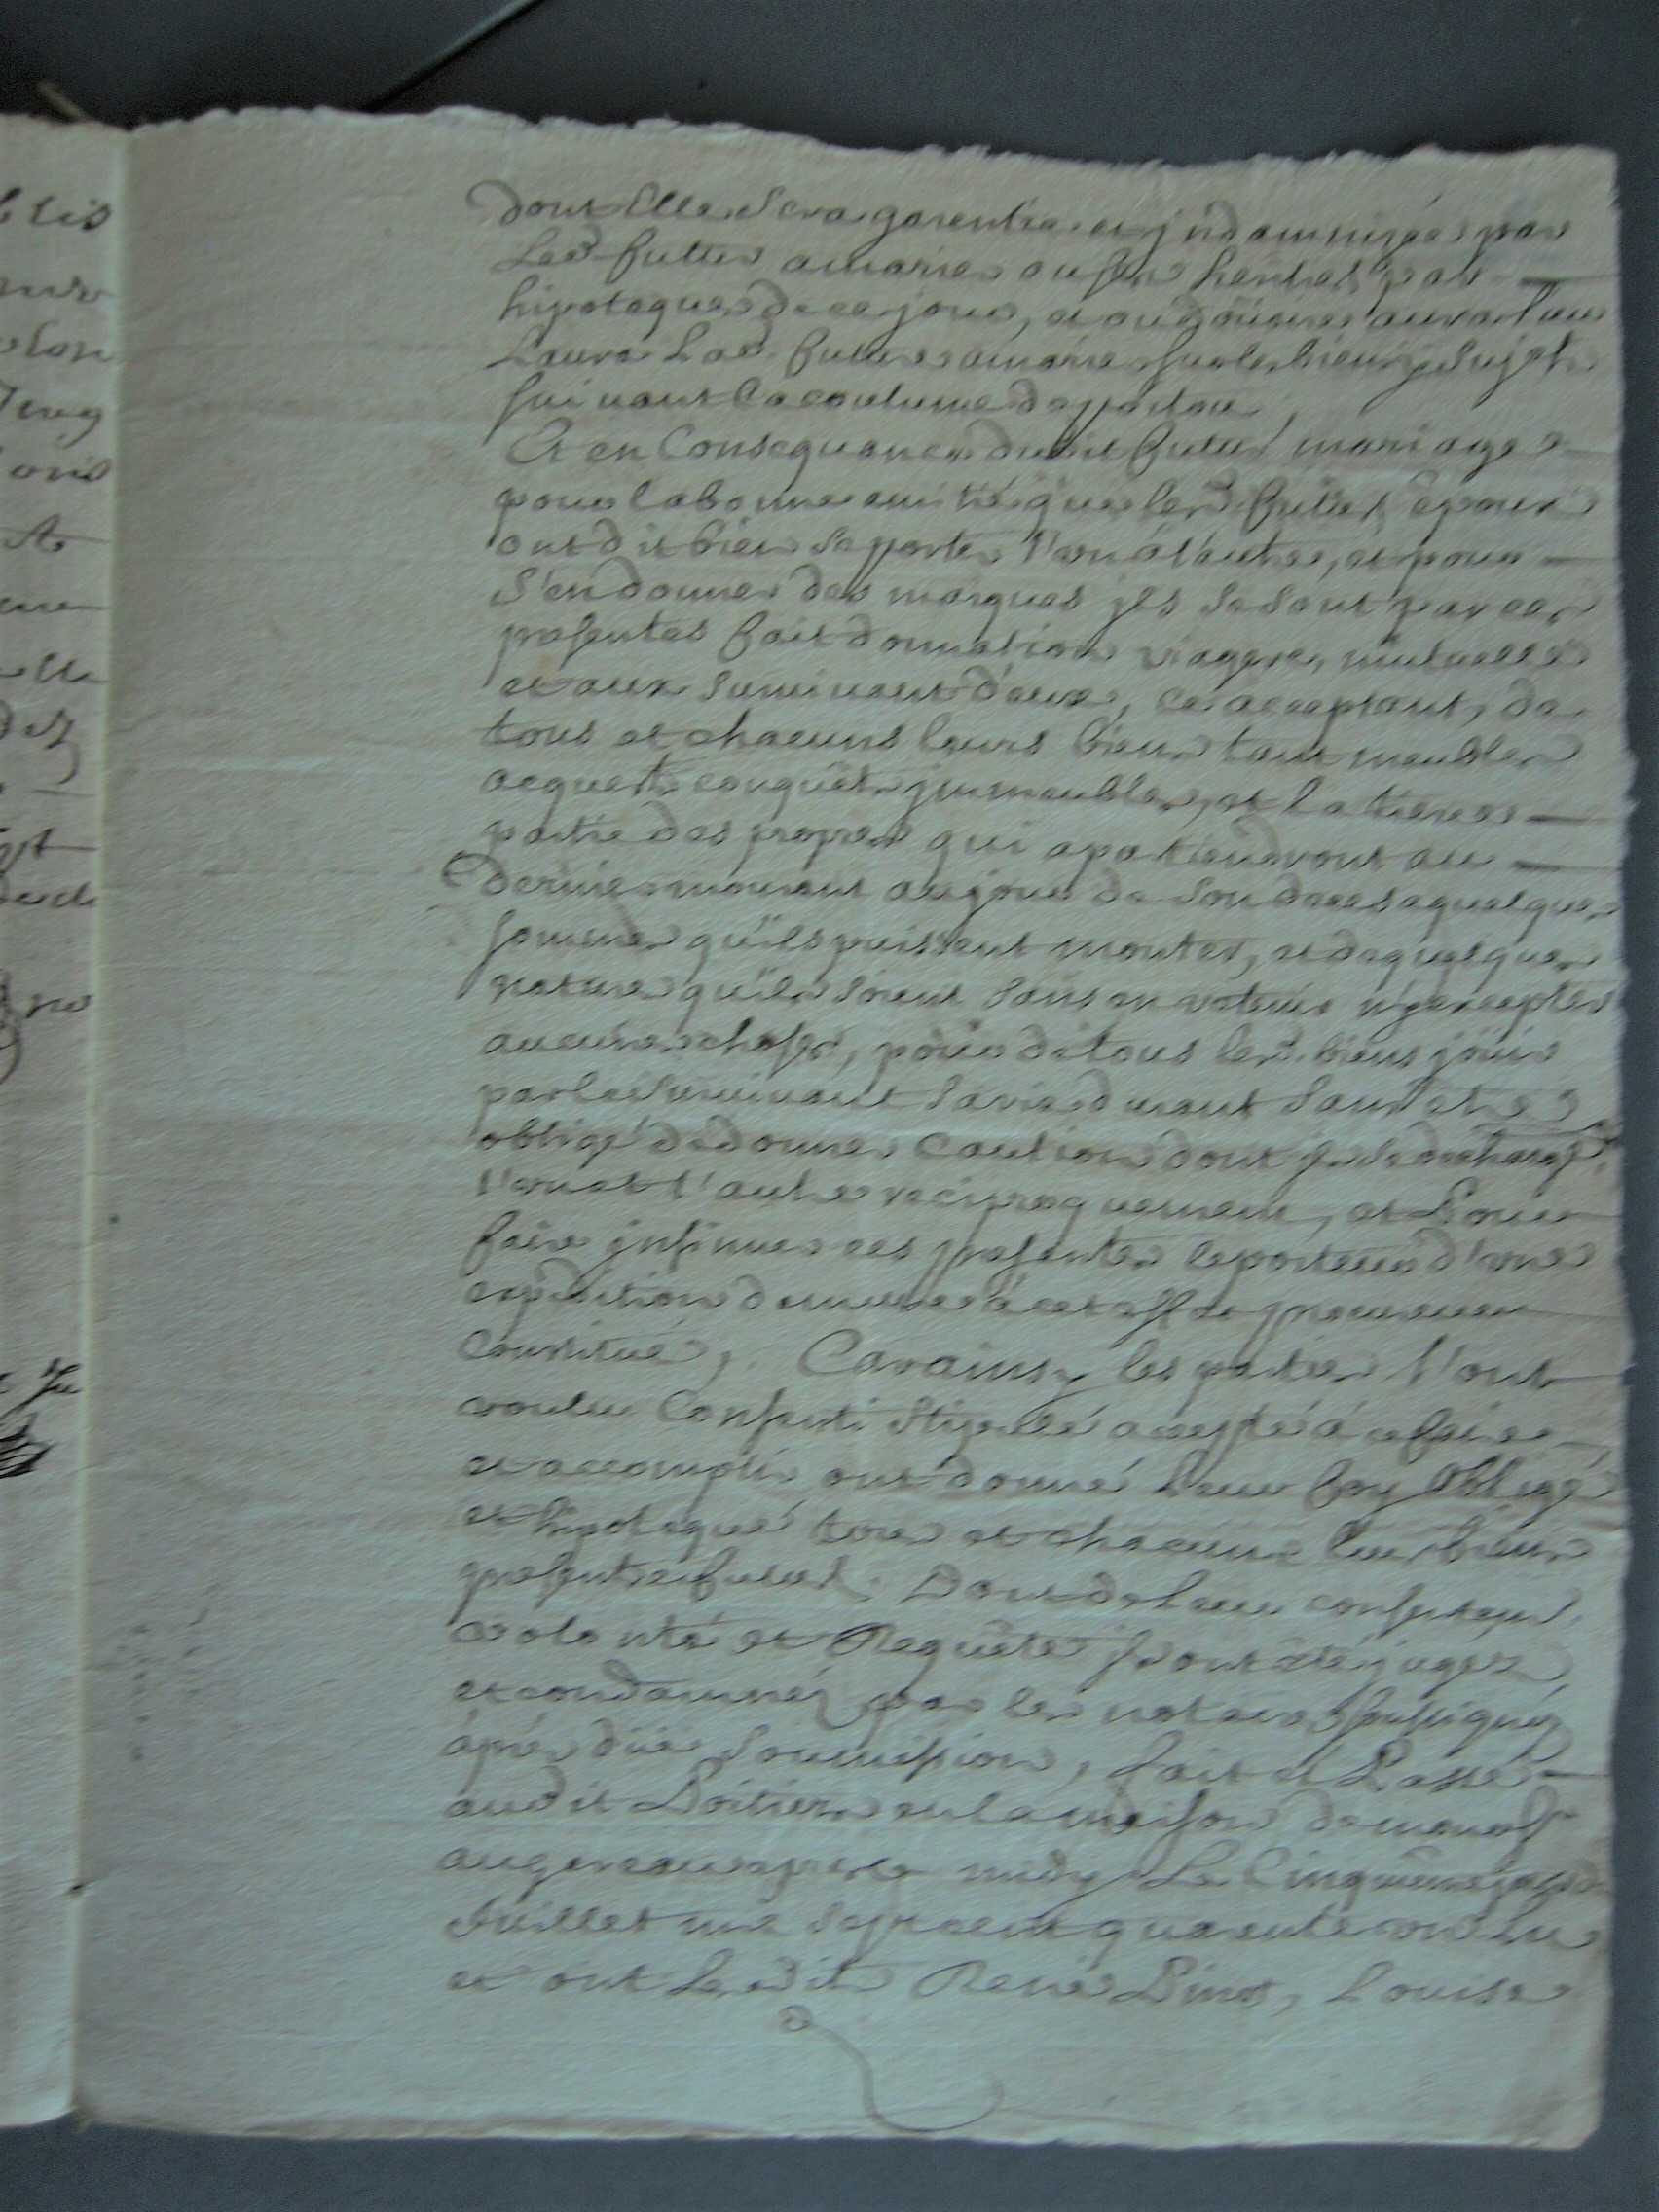 dont Elle Sera garentie et jndamnisée par
Led. futur amarier ou ses heritiers par
hipoteque de ce jour, et ou doüaire aura lieu
Laura Lad. future amarier sur les biens y Sujets
suivant la coutume de poitou,
Et en Consequance dudit futur mariage
pour la bonne amitié que lesd. futurs epoux
ont dit bien se porter l'un a l'autre, et pour
S'en donner des marques jls se sont par ces
presentes fait donnation viagere, mutuelle
et aux Survivant d'eux, ce acceptant, de
tous et chacuns leurs biens tant meubles
acquets conquêts jmmeubles, et la tierce
partie des propres qui apatiendront au
dernier mourant au jour de Son deces a quelque
somme qu'ils puissent monter, et de quelque
nature qu'ils soient Sans en retenir n'y excepter
aucune chose, pour de tous lesd. biens joüir
par led Survivant Sa vie durant Sans etre
obligé de donner Caution dont jls se decharge
l'un et l'autre reciproquement, et Pour
faire jnsinuer ces presentes le porteur d'une
expedition demeure a cet effet procureur
constitué, Car ainsy les parties l'ont
voulu Consenti Stipulé accepté á ce faire
et accomplir ont donné Leur foy Obligé
et hipotequé tous et chacuns leurs biens
presents et futurs. Dont de Leur consentement
volonté et Requête jls ont eté jugés
et condamnés par les notaires soussignés
áprés düe Soumission, fait et Passé
audit Poitiers en la maison de
apres midy Le Cinquieme jour de
Juillet mil Sept cent quarente un Lu
et ont Lesdits René Pinot, Louise